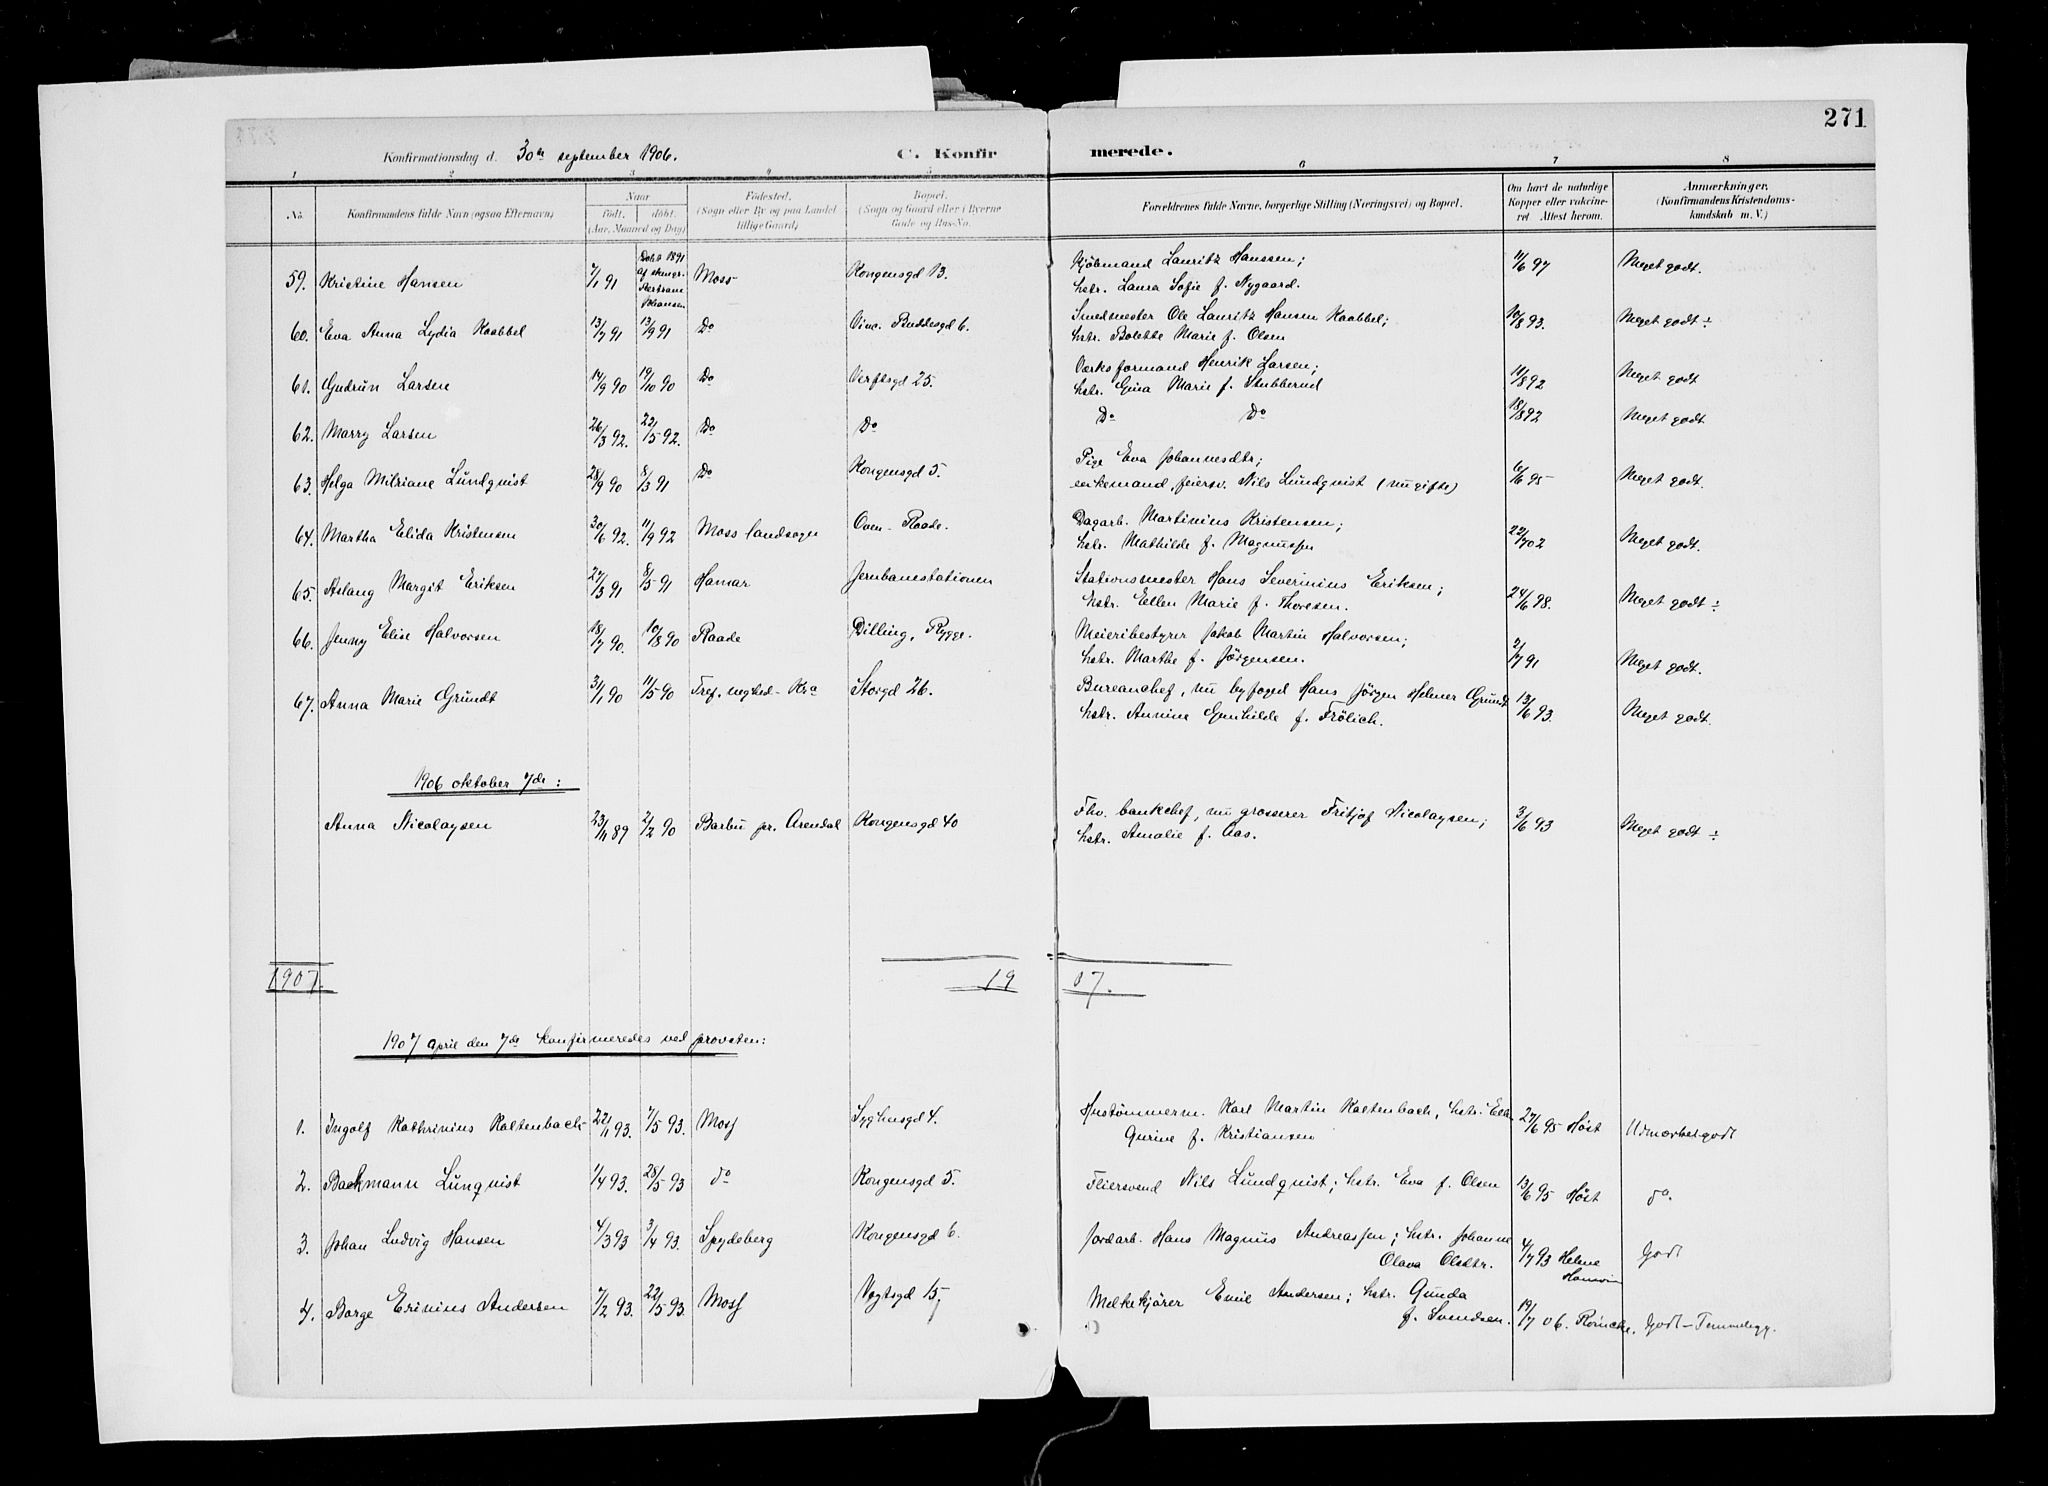 271
Konfirmationsdag d. 30te september 1906. C. Konfirmerede.
1 2 3 4 5 6 7 8
No. Konfirmandens fulde Navn (ogsaa Efternavn) Naar født. døbt. (Aar, Maaned og Dag) Fødested. (Sogn eller By og paa Landet tillige Gaard) Bopæl. (Sogn og Gaard eller i Byerne Gade og Hus-No. Forældrenes fulde Navne, borgerlige Stilling (Næringsvei) og Bopæl. Om havt de naturlige Kopper eller vaccineret Attest herom. Anmærkninger. (Konfirmandens Kristendomskundskab m. V.)
59. Kristine Hansen 7/1 91 Døbt 1891 af Johansen Moss Kongensgd 13. Kjöbmand Lauritz Hanssen; 11/6 97 Meget godt.
hstr. Laura Sofie f. Nygaard.
60. Eva Anna Lydia Kaabbel 13/7 91 13/9 91 Do Vinc. Buddesgd 6. Smedmester Ole Lauritz Hansen Kaabbel; 10/8 93. Meget godt ÷
hstr. Bolette Marie f. Olsen
61. Gudrun Larsen 14/9 90 19/10 90 Do Verftsgd 25. Verksformand Henrik Larsen; 11/8 92 Meget godt
hstr. Gina Marie f. Stubberud
62. Marry Larsen 26/3 92. 22/5 92. Do Do Do Do 18/8 92 Meget godt
63. Helga Milriane Lundquist 28/9 90 8/3 91 Do Kongensgd 5. Pige Eva Johannesdtr; 6/6 95 Meget godt.
enkemand, feiersv. Nils Lundquist (nu gifte)
64. Martha Elida Kristensen 30/6 92. 11/9 92 Moss landsogn Oven - Raade. Dagarb. Martinius Kristensen; 22/7 02 Meget godt.
hstr. Mathilde f. Magnussen
65. Aslaug Margit Eriksen 27/3 91 8/5 91 Hamar Jernbanestationen Stationsmester Hans Severinius Eriksen; 24/6 98. Meget godt ÷
hstr. Ellen Marie f. Thoresen.
66. Jenny Elise Halvorsen 18/7 90. 10/8 90 Raade Dilling, Rygge. Meieribestyrer Jakob Martin Halvorsen; 2/7 91 Meget godt.
hstr. Marthe f. Jørgensen.
67. Anna Marie Grundt 31/1 90 11/5 90 Tref. meghed - Kra Storgd 26. Bureauchef, nu byfoged Hans Jörgen Helmer Grundt 13/6 93. Meget godt.
hstr. Annine Gunhilde f. Frölich.
1906 oktober 7de:
Anna Nicolaysen 23/11 89 2/2 90 Barbu pr. Arendal Kongensgd 40 Fhv. bankchef, nu grosserer Fritjof Nicolaysen; 3/6 93 Meget godt ÷
hstr. Amalie f. Aas.
1907. 19 07.
1907 april den 7de konfirmeredes ved provsten:
1. Ingolf Kathrinius Kaltenbach 22/1 93. 7/5 93. Moss Syghusgd 4. Hustömmerm. Karl Martin Kaltenbach, hstr. Ella 27/6 95 Höst Udmærket godt
Gurine f. Kristiansen
2. Backmann Lunquist 1/4 93. 28/5 93 do Kongensgd 5. Feiersvend Nils Lundquist; hstr. Eva f. Olsen 13/6 95 Höst do.
3. Johan Ludvig Hansen 4/3 93 3/4 93. Spydeberg Kongensgd 6. Jordarb. Hans Magnus Andreassen; hstr. Johanne 4/7 93 Helene Godt
Olava Olsdtr.
4. Borge Erinius Andersen 7/2 93. 22/5 93. Moss Vogtsgd 15 Melkekjører Emil Andersen; hstr. Gunda 19/7 06. Godt -
f. Svendsen.